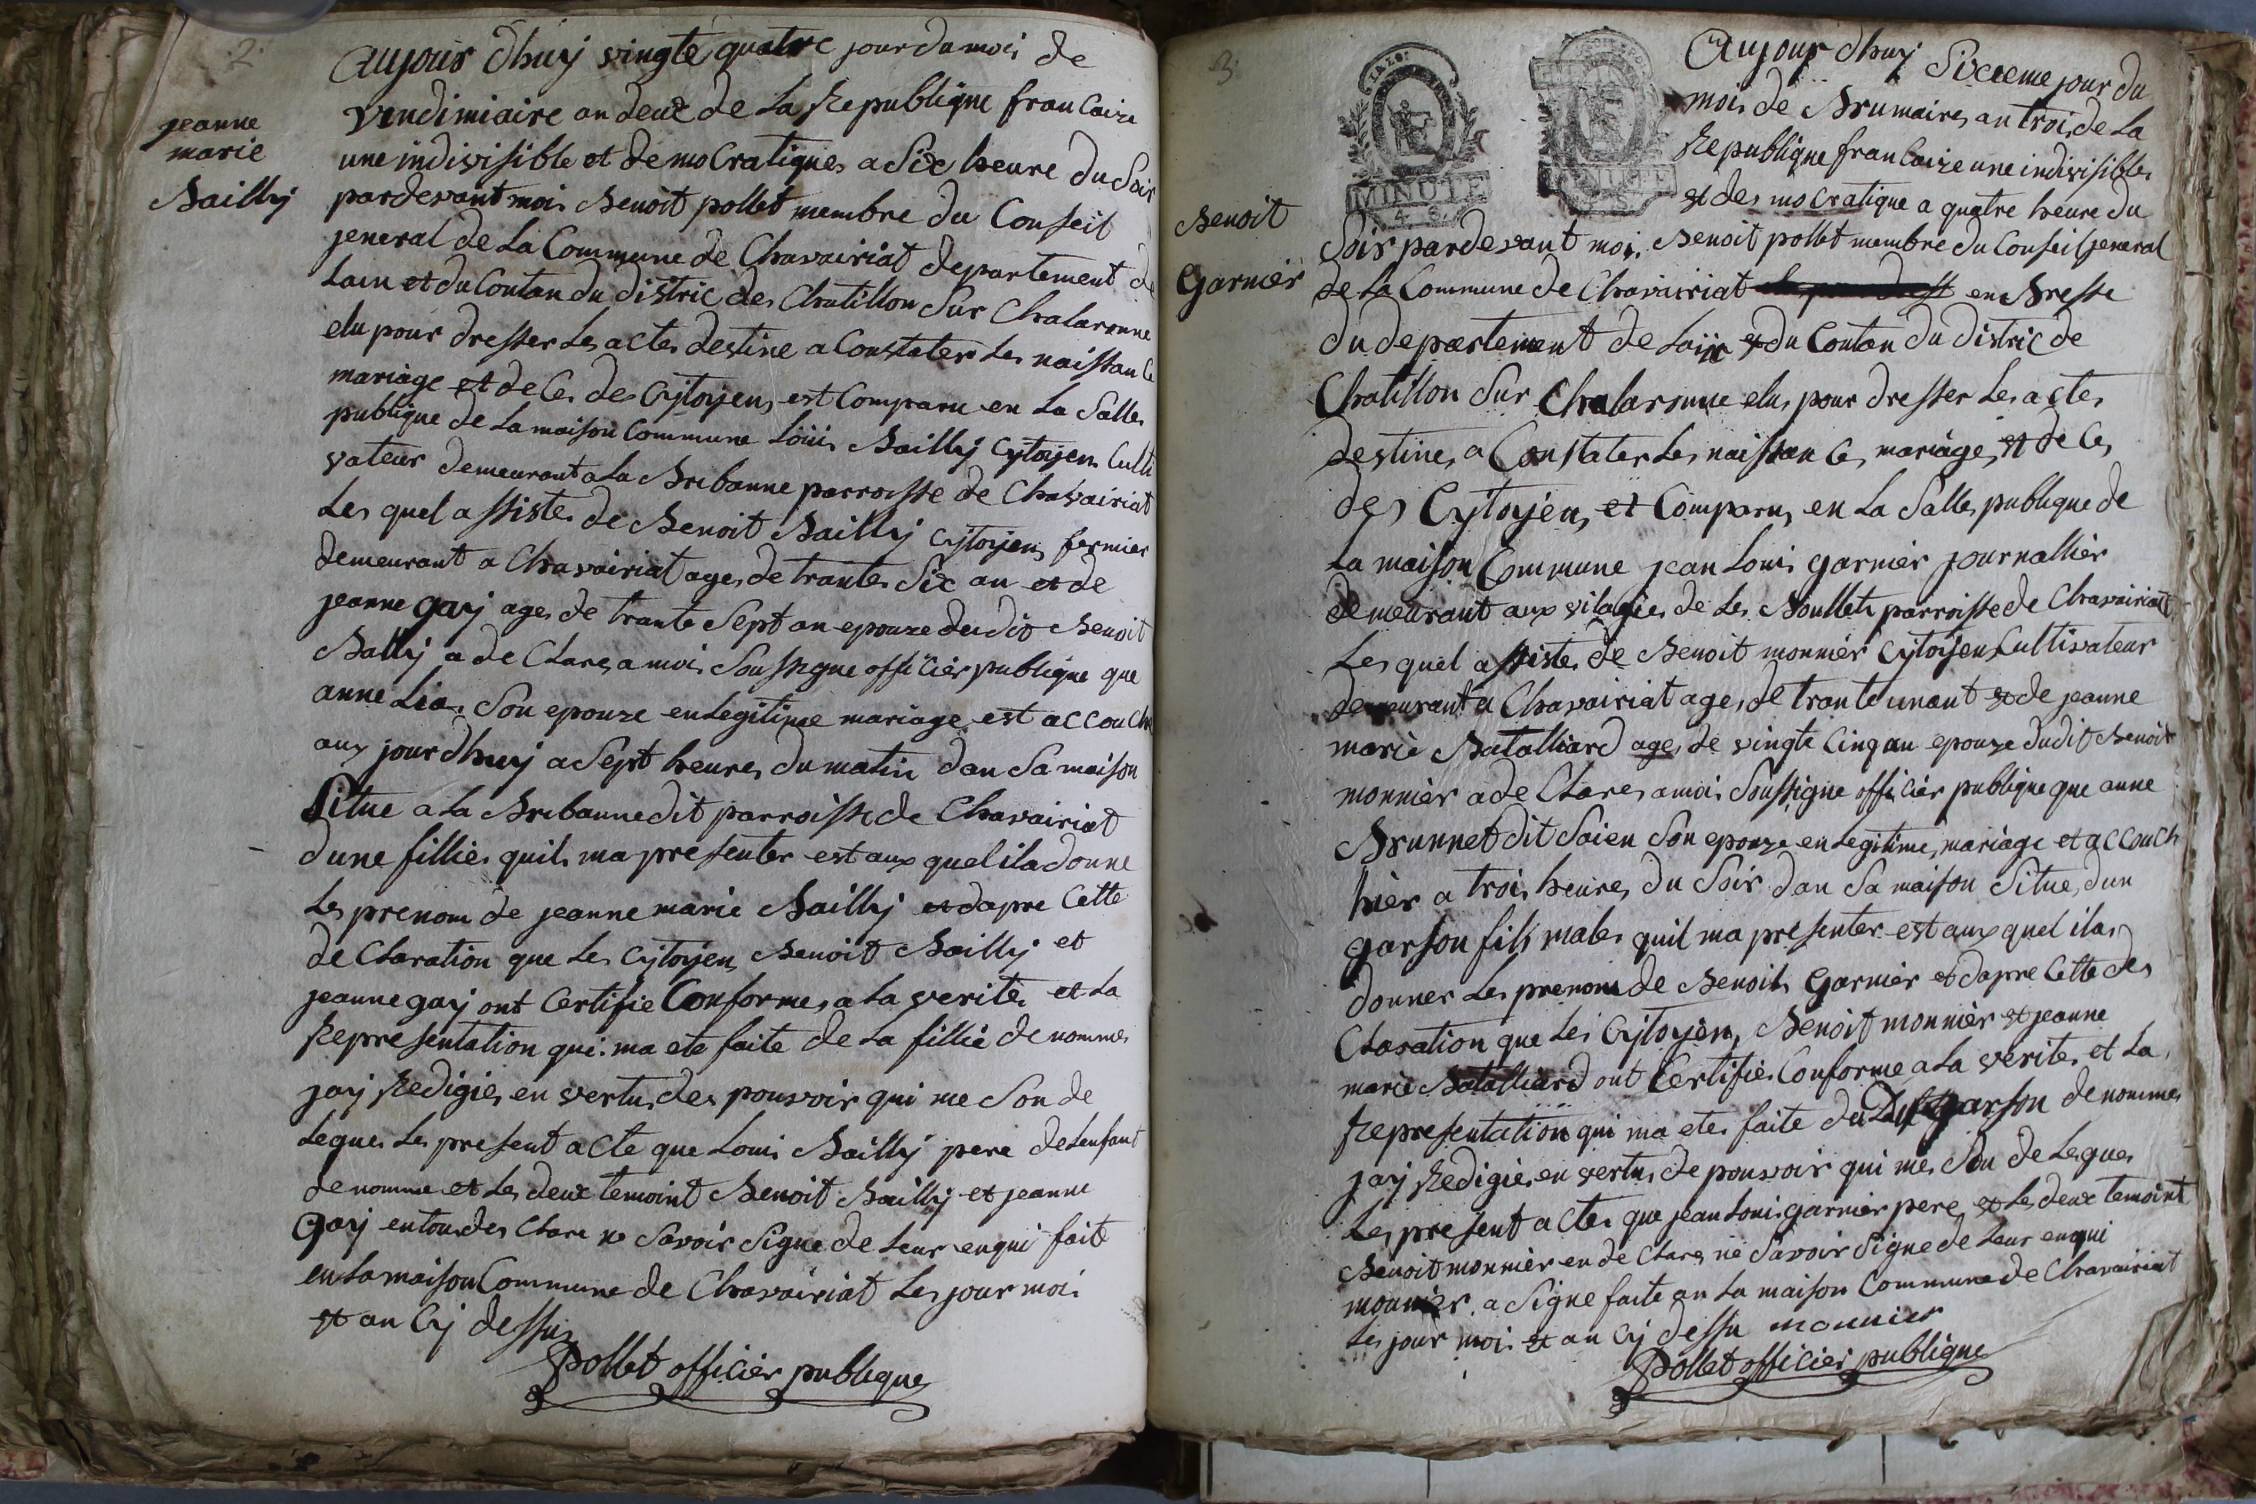 2.
jeanne
marie
Bailly
aujour dhuy vingte quatre jour du moi de
vendimiaire an deux de La Republique francaize
une indivisible et democratique a Six heure du Soir
pardevant moi Benoit pollet membre du Conseil
jeneral de La Commune de Chavairiat departement de
Lain et du Conton du distric de Chatillon Sur Chalaronne
elu pour dresser Les actes destine a Constater Les naissance
mariage et de Ces des Cytoyens est Comparu en La Salle
publique de La maison Commune Loüis Bailly Cytoyen Culti
vateur demeurant a La Bribanne parroisse de Chavairiat
Les quel assiste de Benoit Bailly Cytoyen fermier
demeurant a Chavairiat age de trante Six an et de
jeanne gay age de trante Sept an epouze du dit Benoit
Bailly a de Clare a moi Soussigne officier publique que
anne Lia Son epouze en Legitime mariage est accouche
aux jourdhuy a Sept heures du matin dan Sa maison
Situe a La Bribanne dit parroisse de Chavairiat
dune fillie quil ma presenter est aux quel il a donne
Les prenom de jeanne marie Bailly et dapre Cette
de Claration que Les Cytoyen Benoit Bailly et
jeanne gay ont Certifie Conforme a La verite et La
Representation qui ma ete faite de La fillie de nomme
jay Redigie en vertu des pouvoir qui me Son de
Legue Les present acte que Loui Bailly pere de Lenfant
de nomme et Les deux temoint Benoit Bailly et jeanne
Gay en tou de Clare ne Savoir Signe de Leur enqui faite
en La maison Commune de Chavairiat Les jour moi
et an Cy dessus
Pollet officier publique
3.
MINUTE
4. S.
MINUTE
Benoit
Garnier
Aujour dhuy Sixieme jour du
moi de Brumaire an troi de La
Republique francaize une indivisible
et democratique a quatre heure du
Soir pardevant moi Benoit pollet membre du Conseil jeneral
de La Commune de Chavairiat en Bresse
du departement de Lain et du Conton du distric de
Chatillon Sur Chalaronne elu pour dresser Les actes
destine a Constater Les naissance mariage et de Ces
des Cytoyen et Comparu en La Salle publique de
La maison Commune jean Loui garnier journallier
demeurant aux vilagie de Les Boullet parroisse de Chavairiat
Les quel assiste de Benoit monnier Cytoyen Cultivateur
demeurant a Chavairiat age de trante unant et de jeanne
marie Batalliard age de vingte Cinq an epouze dudit Benoit
monnier a de Clare a moi Soussigne officier publique que anne
Brunnet dit Soien Son epouze en Legitime mariage et accouch
hier a troi heure du Soir dan Sa maison Situe dun
garson fils male quil ma presenter est aux quel il a
donner Les prenom de Benoit Garnier et dapre Cette de
Claration que Les Cytoyen Benoit monnier et jeanne
marie Batalliard ont Certifie Conforme a La verite et La
Representation qui ma ete faite du garson de nomme
jay Redigie en vertu de pouvoir qui me Son de Legue
Les present acte que jean Loui garnier pere et Les deux temoint
Benoit monnier en de Clare ne Savoir Signe de Leur enqui
monnier a Signe faite an La maison Commune de Chavairiat
Les jour moi et an Cy dessu monnier
Pollet officier publique